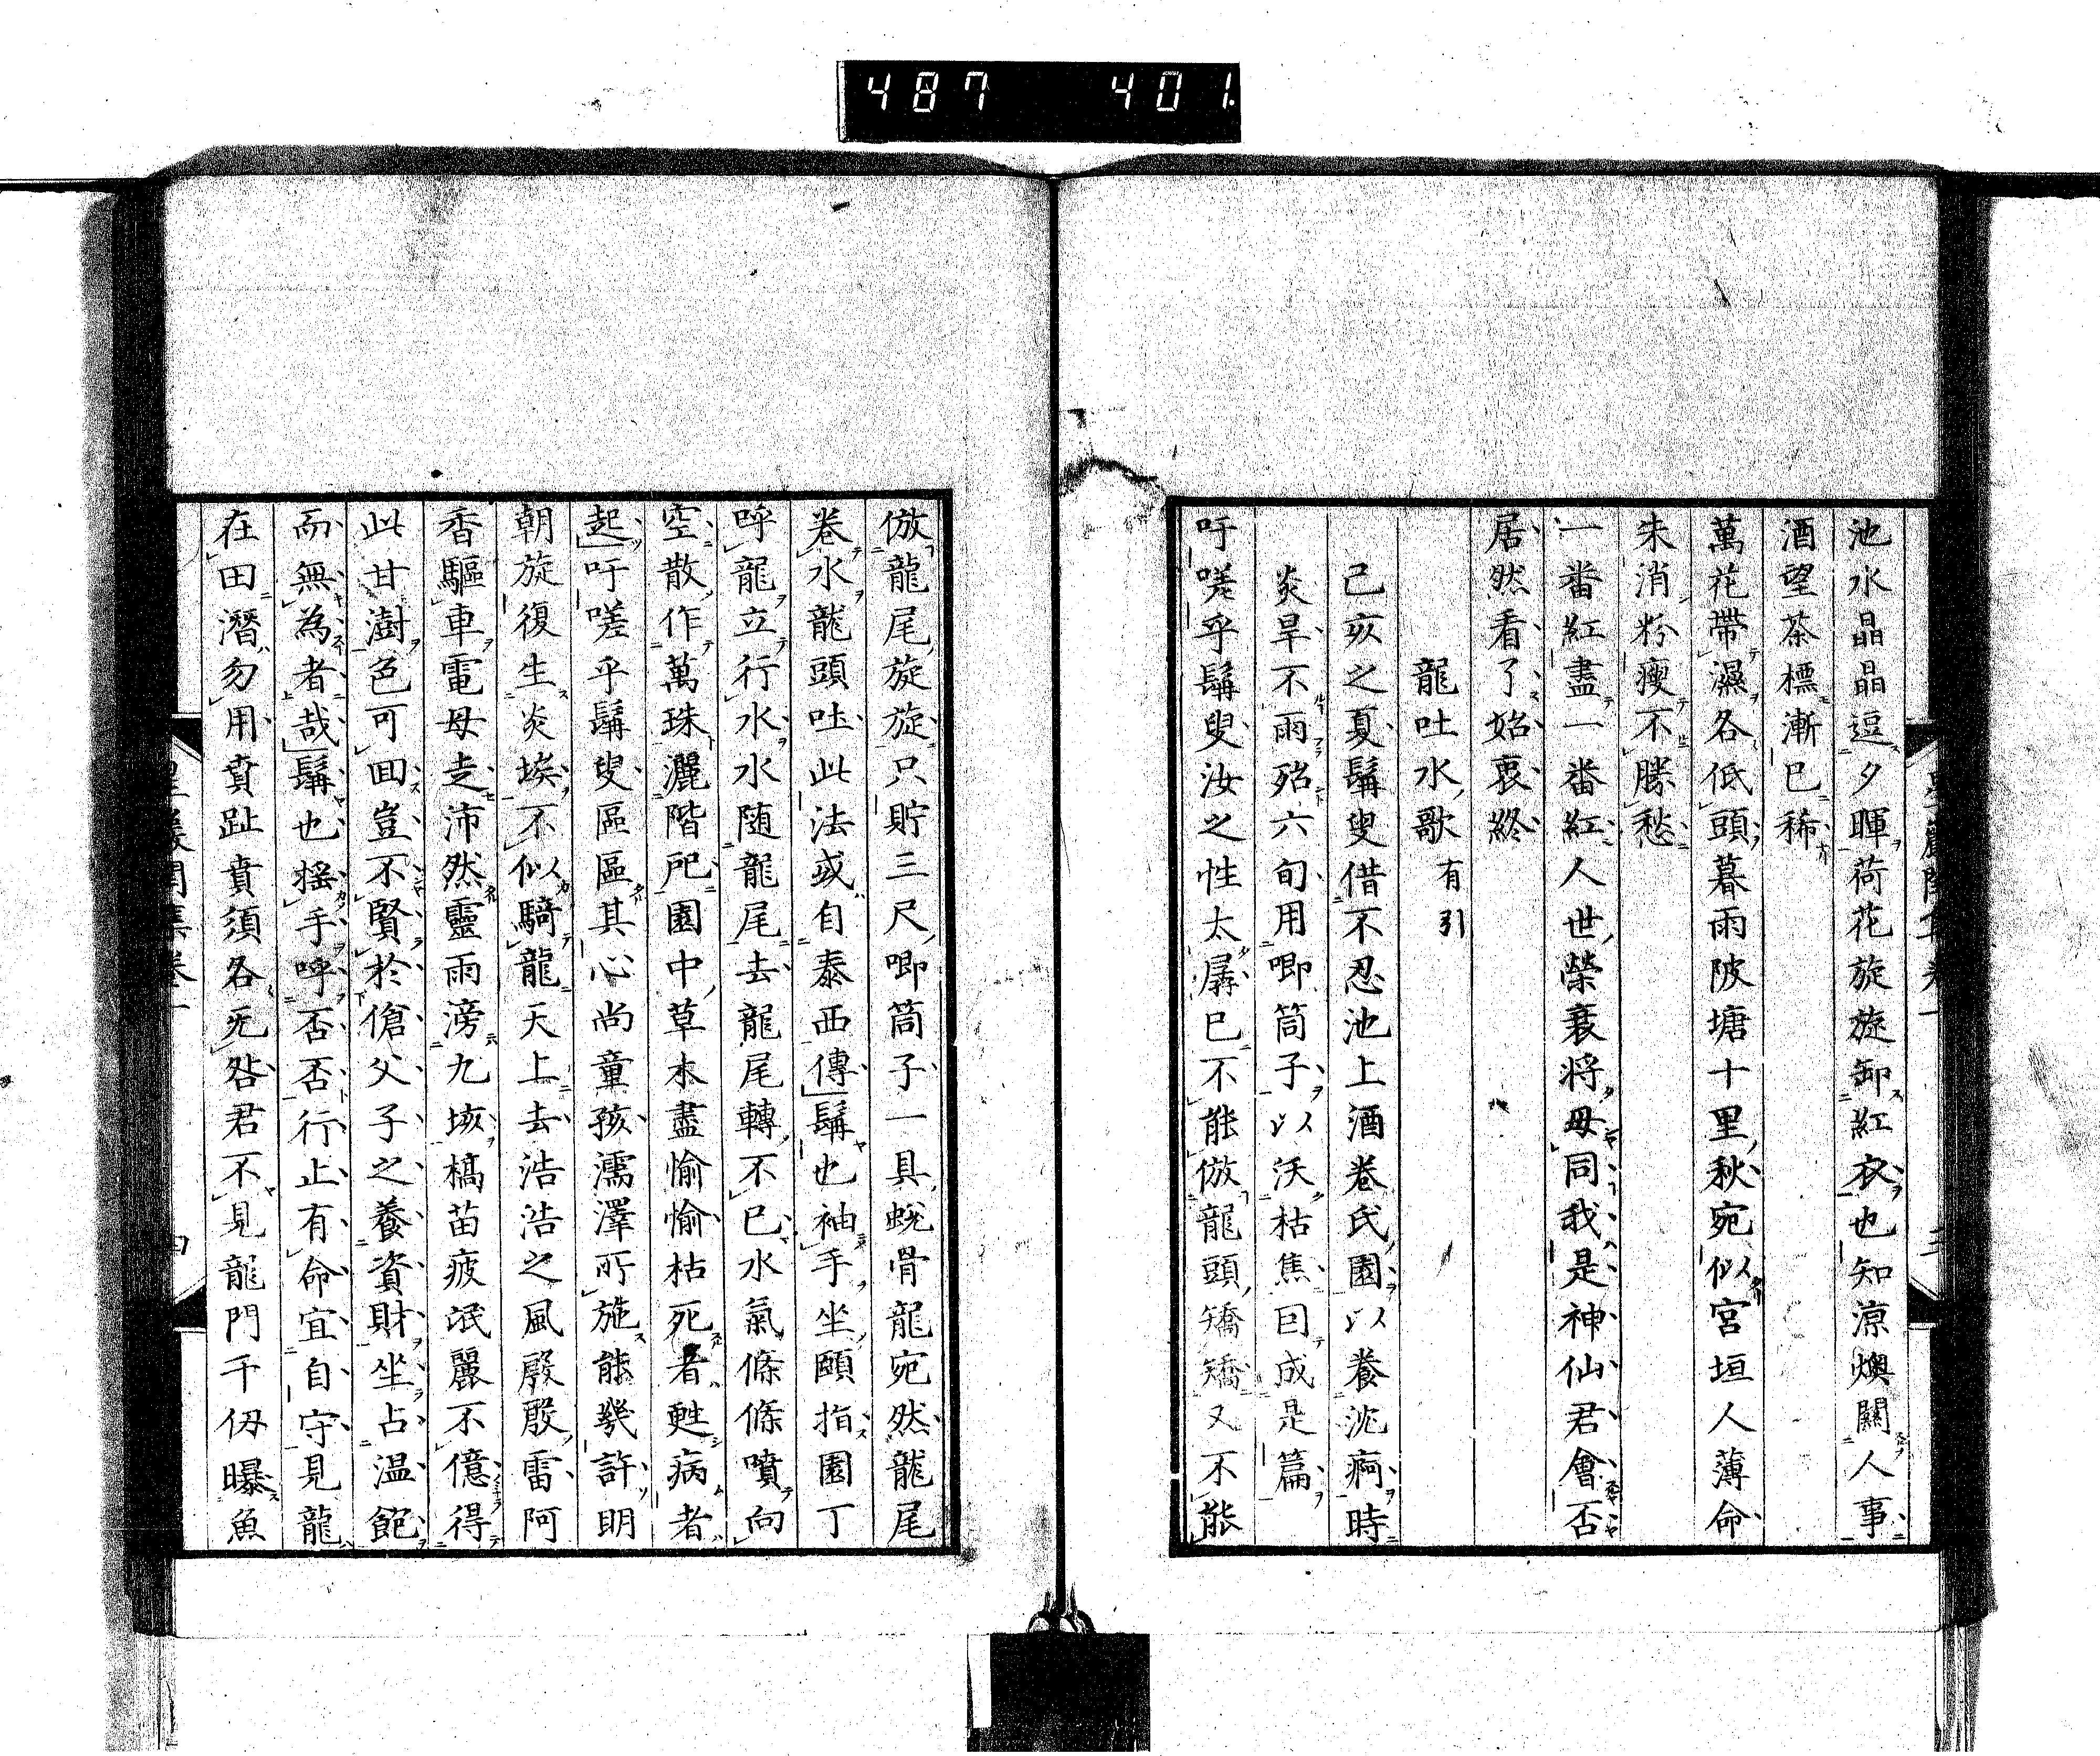 487 401.
池水晶晶逗夕暉荷花旋旋卸紅衣也知涼燠關人事
酒望茶標漸已稀
萬花帶濕各低頭暮雨陂塘十里秋宛似宮垣人薄命
朱消粉瘦不勝愁
一番紅盡一番紅人世榮衰將毋同我是神仙君會否
居然看了始衷終
龍吐水歌有引
己亥之夏髯叟借不忍池上酒巻氏園以養沈痾時
炎旱不雨殆六旬用喞筒子以沃枯焦因成是篇
吁嗟乎髯叟汝之性太孱已不能倣龍頭矯矯又不能
倣龍尾旋旋只貯三尺喞筒子一具蛻骨龍宛然龍尾
巻水龍頭吐此法或自泰西傳髯也袖手坐頤指園丁
呼龍立行水水随龍尾去龍尾轉不已水氣條條噴向
空散作萬珠灑階戺園中草木盡愉愉枯死者甦病者
起吁嗟乎髯叟區區其心尚童孩濡澤所施能幾許明
朝旋復生炎埃不似騎龍天上去浩浩之風殷殷雷阿
香驅車電母走沛然靈雨滂九垓槁苗疲氓麗不億得
此甘澍色可回豈不賢於傖父子之養資財坐占温飽
而無為者哉髯也搖手呼否否行止有命宜自守見龍
在田潛勿用賁趾賁須各无咎君不見龍門千仞曝魚